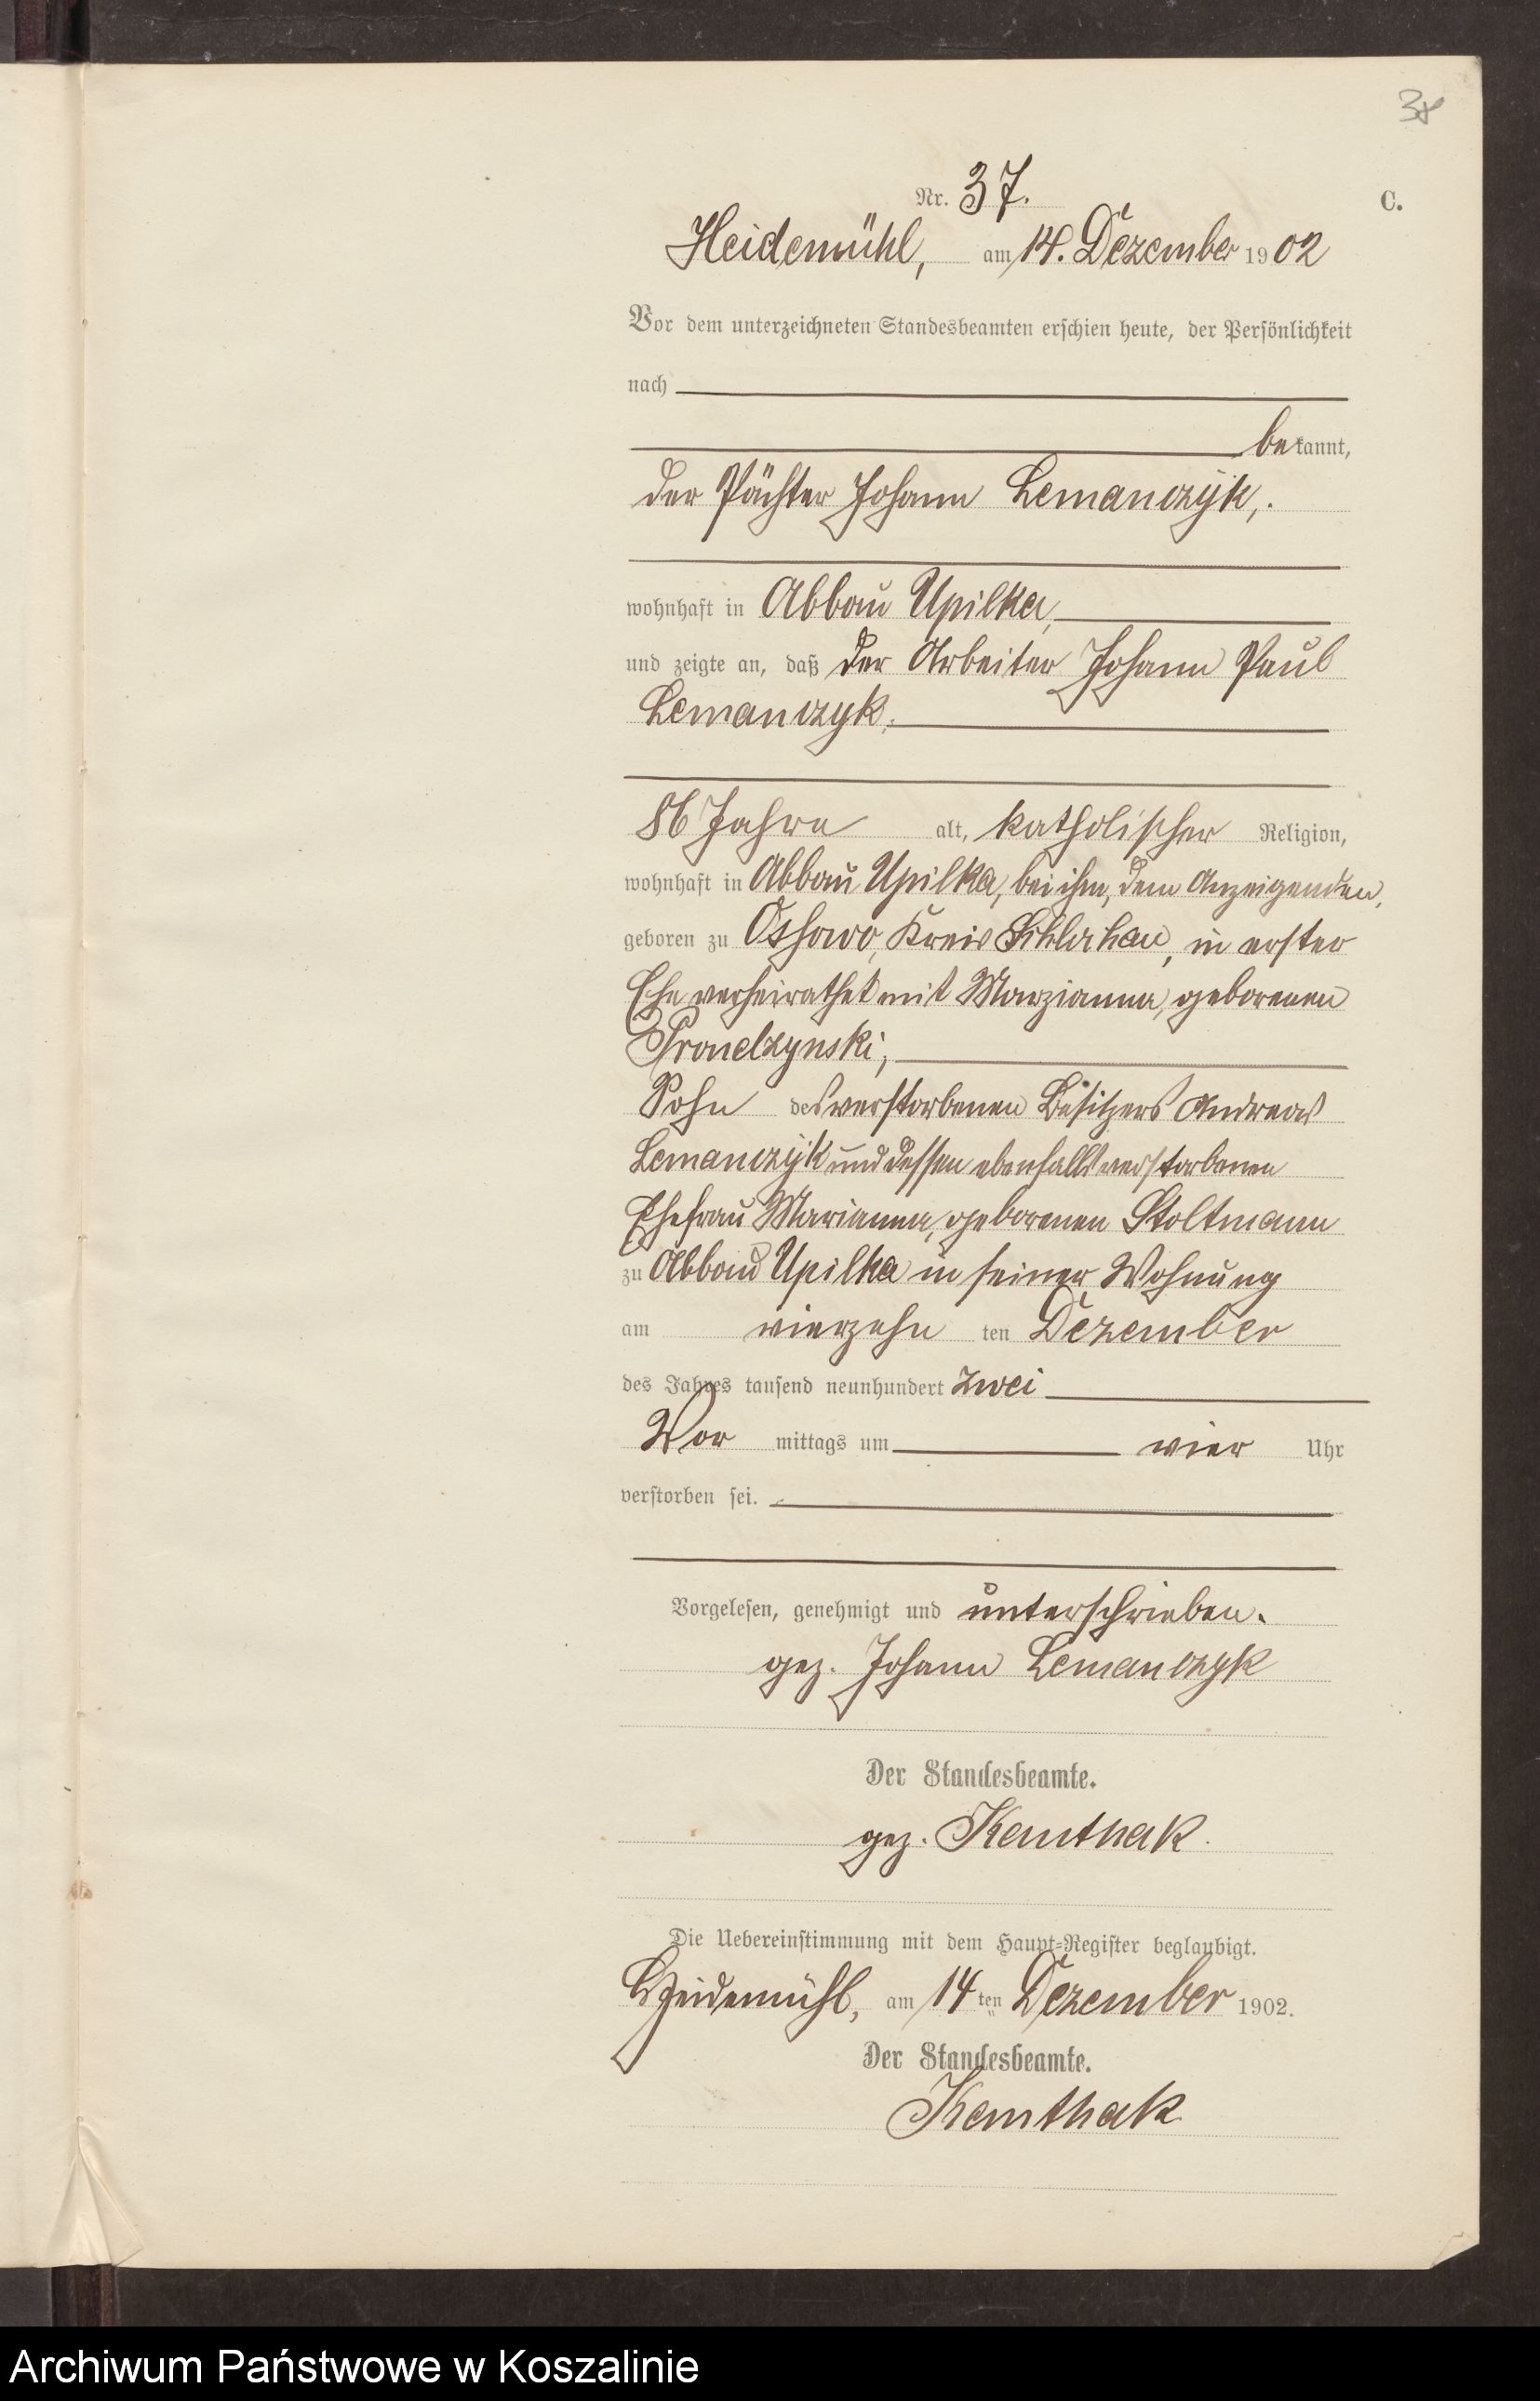 38
Nr. 37.
C.
Heidemühl, am 14. Dezember 1902
Vor dem unterzeichneten Standesbeamten erschien heute, der Persönlichkeit
nach
bekannt,
der Pächter Johann Lemanczyk,.
wohnhaft in Abbau Upilka,
und zeigte an, daß der Arbeiter Johann Paul
Lemanczyk,
86 Jahre alt, katholischer Religion,
wohnhaft in Abbau Upilka, bei ihm, dem Anzeigenden,
geboren zu Ossowo, Kreis Schlochau, in erster
Ehe verheirathet mit Marzianna, geborenen
Prondzynski,
Sohn des verstorbenen Besitzers Andreas
Lemanczyk und dessen ebenfalls verstorbenen
Ehefrau Marianna, geborenen Stoltmann
zu Abbau Upilka in seiner Wohnung
am vierzehn ten Dezember
des Jahres tausend neunhundert zwei
Vor mittags um vier Uhr
verstorben sei.
Vorgelesen, genehmigt und unterschrieben.
gez. Johann Lemanczyk
Der Standesbeamte.
gez. Kemthak.
Die Uebereinstimmung mit dem Haupt-Register beglaubigt.
Heidemühl, am 14 ten Dezember 1902.
Der Standesbeamte.
Kemthak
Archiwum Państwowe w Koszalinie